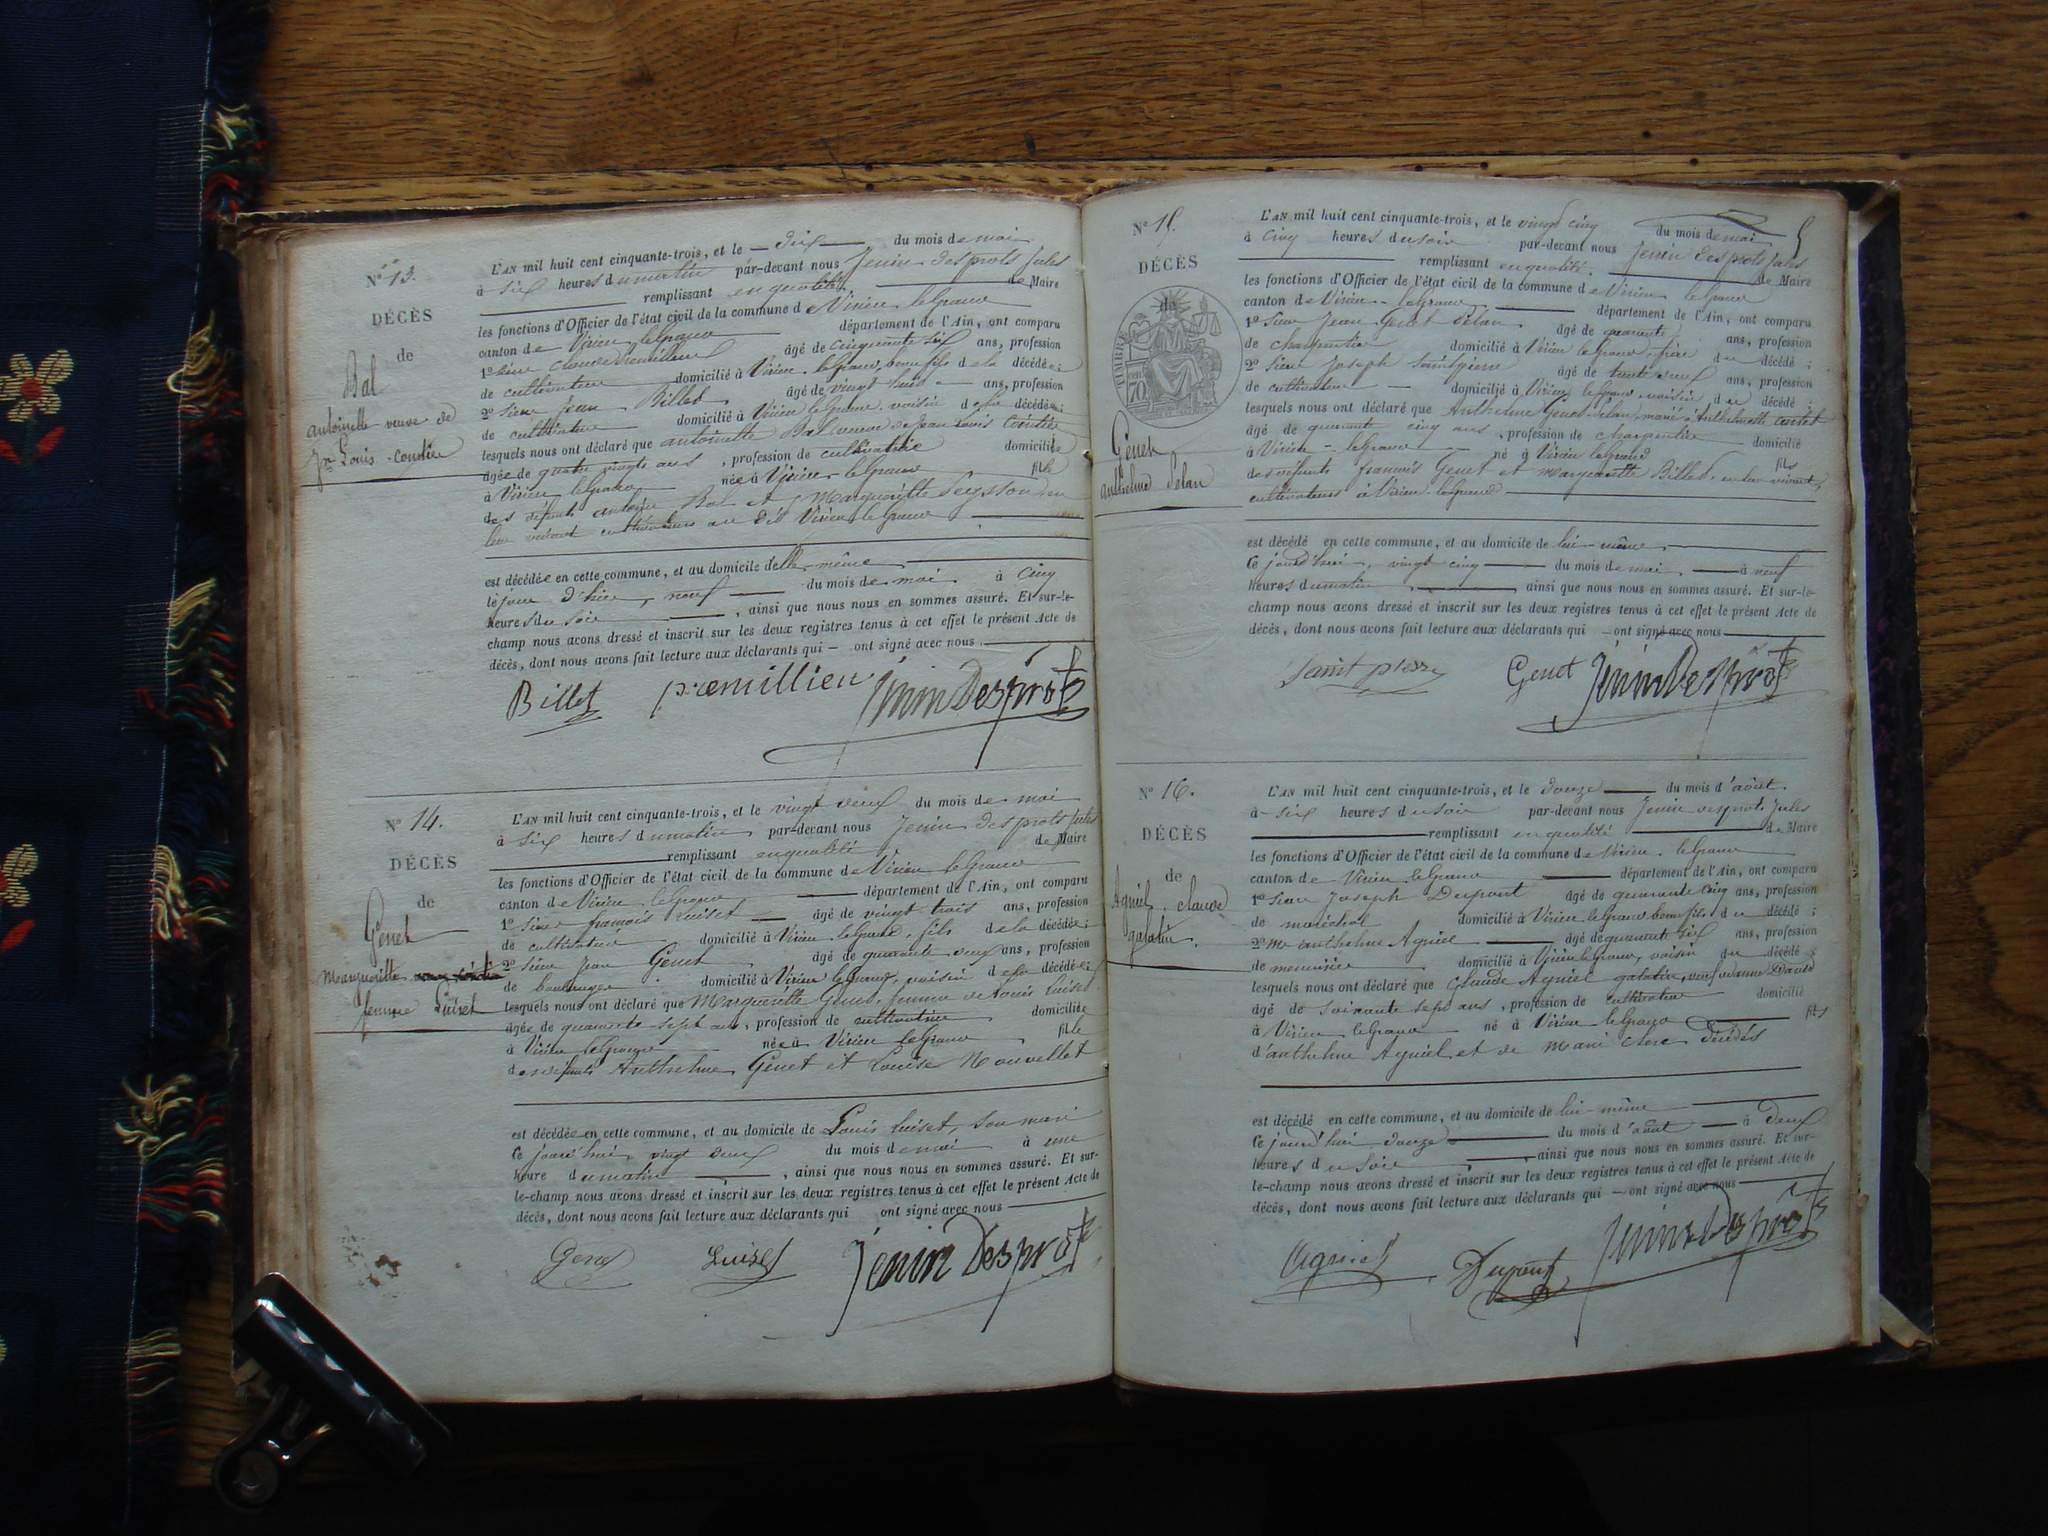 No 13.
DÉCÈS
de
Bal
antoinette veuve de
Jn Louis
L'AN mil huit cent cinquante-trois, et le dix du mois de mai
à six heures du matin par-devant nous Jenin desprots Jules
remplissant en qualité de Maire
les fonctions d'Officier de l'état civil de la commune de Virieu le Grand
canton de Virieu le Grand département de l'Ain, ont comparu
1o Sieur Claude Premillieu âgé de cinquante six ans, profession
de cultivateur domicilié à Virieu le Grand, beau fils de la décédée;
2o Sieur Jean Billet âgé de vingt huit ans, profession
de cultivateur domicilié à Virieu le Grand, voisin de la décédée;
lesquels nous ont déclaré que antoinette Bal veuve de Jean Louis
agée de quatre vingts ans, profession de cultivatrice domiciliée
à Virieu le Grand née à Virieu le Grand fille
des défunts antoine Bal et Marguerite
leur vivant cultivateurs au dit Virieu le Grand
est décédée en cette commune, et au domicile d'elle même
le jour d'hier, neuf du mois de mai à cinq
heures du soir, ainsi que nous nous en sommes assuré. Et sur-le-
champ nous avons dressé et inscrit sur les deux registres tenus à cet effet le présent Acte de
décès, dont nous avons fait lecture aux déclarants qui ont signé avec nous
Billet premillieu Jenin Desprots
No 14.
DÉCÈS
de
Genet
Marguerite
femme Luiset
L'AN mil huit cent cinquante-trois, et le vingt deux du mois de mai
à six heures du matin par-devant nous Jenin desprots Jules
remplissant en qualité de Maire
les fonctions d'Officier de l'état civil de la commune de Virieu le Grand
canton de Virieu le Grand département de l'Ain, ont comparu
1o Sieur françois Luiset âgé de vingt trois ans, profession
de cultivateur domicilié à Virieu le Grand, fils de la décédée;
2o Sieur Jean Genet âgé de quarante deux ans, profession
de boulanger domicilié à Virieu le Grand, voisin de la décédée;
lesquels nous ont déclaré que Marguerite Genet, femme de Louis Luiset
âgée de quarante sept ans, profession de cultivatrice domiciliée
à Virieu le Grand née à Virieu le Grand fille
des défunts Anthelme Genet et Louise Nouvellet
est décédée en cette commune, et au domicile de Louis Luiset, son mari
Ce jourd'hui vingt deux du mois de mai à une
heure du matin, ainsi que nous nous en sommes assuré. Et sur-
le-champ nous avons dressé et inscrit sur les deux registres tenus à cet effet le présent Acte de
décès, dont nous avons fait lecture aux déclarants qui ont signé avec nous
Genet Luiset Jenin Desprots
No 15.
DÉCÈS
de
TIMBRE
70
Genet
anthelme Pelan
L'AN mil huit cent cinquante-trois, et le vingt cinq du mois de mai
à cinq heures du soir par-devant nous Jenin desprots Jules
remplissant en qualité de Maire
les fonctions d'Officier de l'état civil de la commune de Virieu le Grand
canton de Virieu le Grand département de l'Ain, ont comparu
1o Sieur Jean Genet Pelan âgé de quarante ans, profession
de charpentier domicilié à Virieu le Grand, frère du décédé;
2o Sieur Joseph Saintpierre âgé de trente deux ans, profession
de cultivateur domicilié à Virieu le Grand, voisin du décédé;
lesquels nous ont déclaré que Anthelme Genet Pelan, marié à
âgé de quarante cinq ans, profession de charpentier domicilié
à Virieu le Grand né à Virieu le Grand fils
des défunts françois Genet et Marguerite Billet, en leur vivant
cultivateurs à Virieu le Grand
est décédé en cette commune, et au domicile de lui même
Ce jourd'hui, vingt cinq du mois de mai à neuf
heures du matin, ainsi que nous nous en sommes assuré. Et sur-le-
champ nous avons dressé et inscrit sur les deux registres tenus à cet effet le présent Acte de
décès, dont nous avons fait lecture aux déclarants qui ont signé avec nous
Saint pierre Genet Jenin Desprots
No 16.
DÉCÈS
de
Aguiel claude
galatin
L'AN mil huit cent cinquante-trois, et le douze du mois d'août
à six heures du soir par-devant nous Jenin desprots Jules
remplissant en qualité de Maire
les fonctions d'Officier de l'état civil de la commune de Virieu le Grand
canton de Virieu le Grand département de l'Ain, ont comparu
1o Sieur Joseph Dupont âgé de quarante cinq ans, profession
de maréchal domicilié à Virieu le Grand beau fils du décédé;
2o Mr anthelme Aguiel âgé de quarante six ans, profession
de menuisier domicilié à Virieu le Grand, voisin du décédé;
lesquels nous ont déclaré que Claude Aguiel galatin, veuf David
âgé de soixante sept ans, profession de cultivateur domicilié
à Virieu le Grand né à Virieu le Grand fils
d'anthelme Aguiel et de Marie Clerc décédés
est décédé en cette commune, et au domicile de lui même
Ce jourd'hui douze du mois d'août à deux
heures du soir, ainsi que nous nous en sommes assuré. Et sur-
le-champ nous avons dressé et inscrit sur les deux registres tenus à cet effet le présent Acte de
décès, dont nous avons fait lecture aux déclarants qui ont signé avec nous
Aguiel Dupont Jenin Desprots